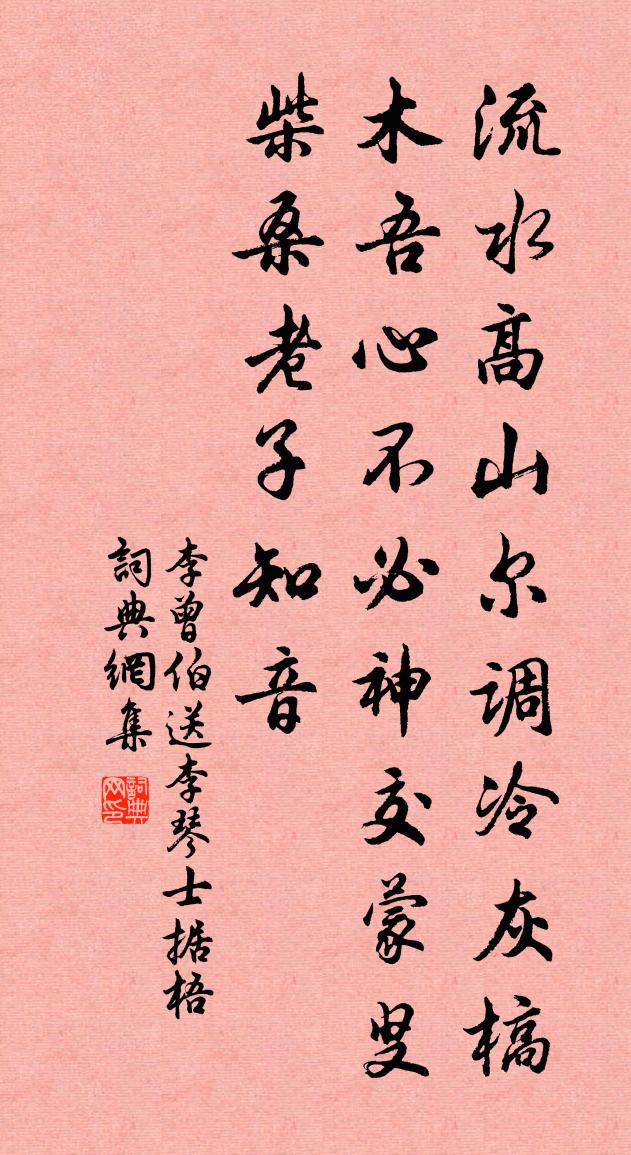 流水高山尔调冷灰槁
木吾心不必神交蒙叟
柴桑老子知音
李曾伯送李琴士据梧
詞典網集
詞典網印